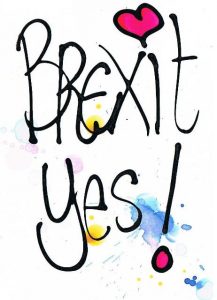 BREXit
yes!